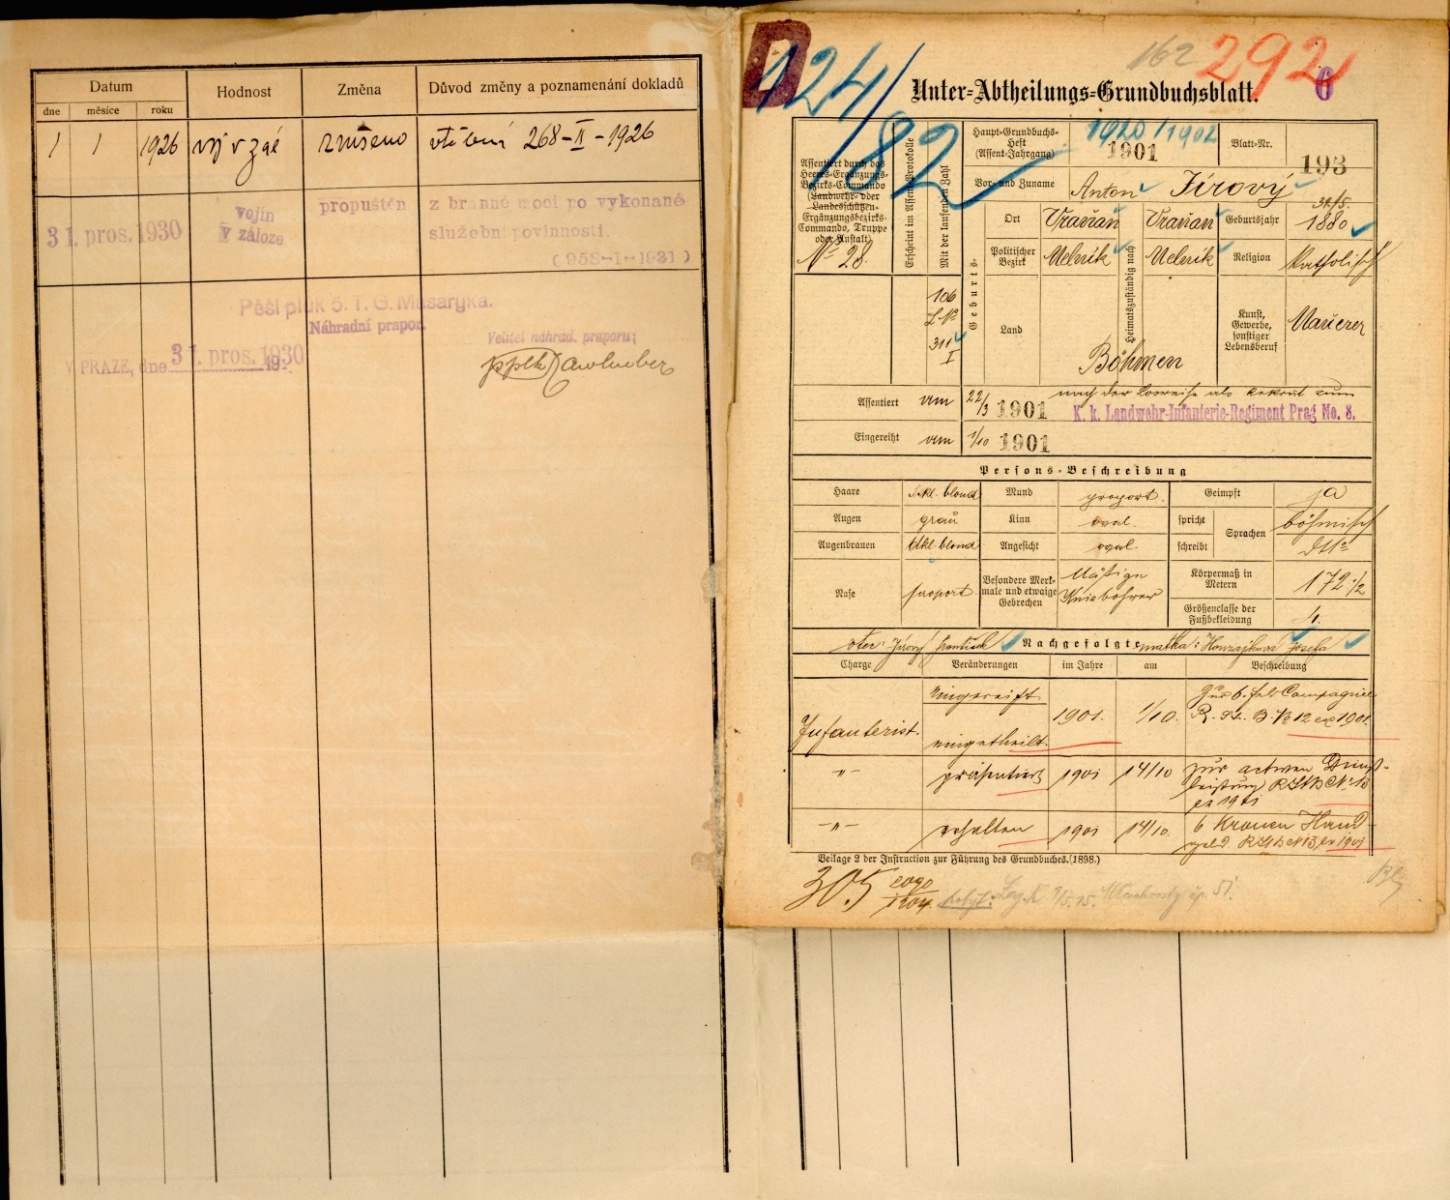 Datum Hodnost Změna Důvod změny a poznamenání dokladů
dne měsíce roku
1 1 1926 voj v zál zrušeno vtělení 268-II-1926
31. pros. 1930 vojín v záloze propuštěn z branné moci po vykonané
služební povinnosti.
(958-I-1931)
Pěší pluk 5. T. G. Masaryka.
Náhradní prapor.
V PRAZE, dne 31. pros. 1930
19
Velitel náhrad. praporu:
pplk
162 292
124/82
Unter-Abtheilungs-Grundbuchsblatt. 6
Assentiert durch das
Heeres-Ergänzungs-
Bezirks-Commando
(Landwehr- oder
Landesschützen-
Ergänzungsbezirks-
Commando, Truppe
oder Anstalt)
№ 28.
Erscheint im Assent-Protokolle
Mit der laufenden Zahl
106
311
I
Haupt-Grundbuchs-
Heft
(Assent-Jahrgang)
1920/1902
1901
Blatt-Nr.
193
Vor- und Zuname Anton Jírový
Geburts-
Ort Vraňan Vraňan
Geburtsjahr 31/5. 1880
Politischer
Bezirk Melnik Melnik
Heimatszuständig nach
Religion Katholisch
Land Böhmen
Kunst,
Gewerbe,
sonstiger
Lebensberuf
Maurer
Assentiert am 22/3 1901 nach der Losreihe als Rekrut zum
K. k. Landwehr-Infanterie-Regiment Prag No. 8.
Eingereiht am 1/10 1901
Persons-Beschreibung
Haare dkl. blond Mund proport. Geimpft ja
Augen grau Kinn oval. spricht Sprachen böhmisch
Augenbrauen dkl. blond Angesicht oval. schreibt dtto
Nase proport. Besondere Merk-
male und etwaige
Gebrechen
Mäßige
Kniebohrer
Körpermaß in
Metern
172·1/2
Größenclasse der
Fußbekleidung
4.
otec: Jírový František Nachgefolgte matka: Josefa
Charge Veränderungen im Jahre am Beschreibung
Infanterist. eingereiht 1901. 1/10. Zur 6. Feld Compagnie
eingetheilt. 12 ex 1901.
-"- präsentiert 1901 14/10 zur activen Dienst-
leistung
ex 1901
-"- erhalten 1901 14/10. 6 Kronen Hand-
geld ex 1901
Beilage 2 der Instruction zur Führung des Grundbuches. (1898.)
305 1904.